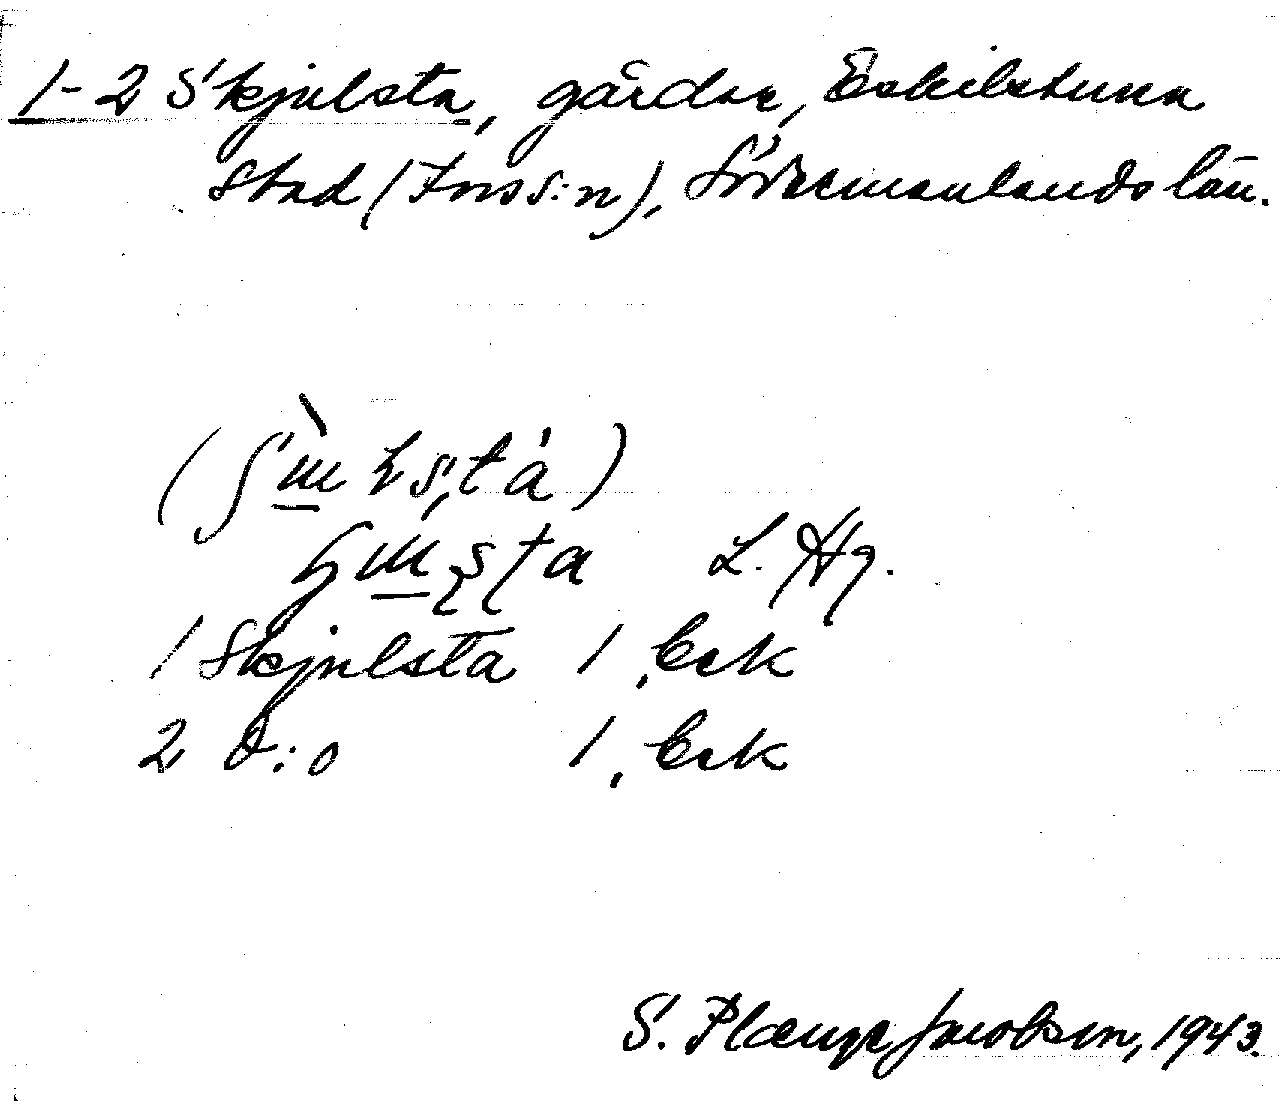 1-2 Skjulsta, gårdar, Eskilstuna
stad (Fors s:n), Södermanlands län.
L. Hg.
1 Skjulsta 1, Eck
2 d:o 1, Eck
S. Plænge Jacobson, 1943.